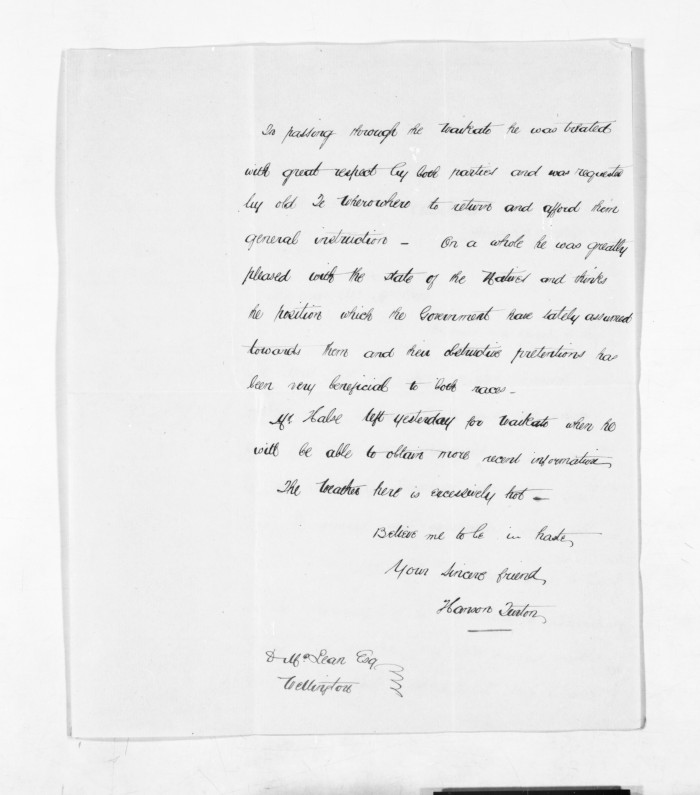 In passing through the Waikato he was treated
with great respect by both parties and was requested
by old Te Wherowhero to return and afford them
general instruction – On a whole he was greatly
pleased with the state of the Natives and thinks
the position which the Government have lately assumed
towards them and their obstructive pretentions has
been very beneficial to both races –
Mr. Halse left yesterday for Waikato when he
will be able to obtain more recent information
The weather here is excessively hot –
Believe me to be in haste,
Your sincere friend,
Hanson Turton,
D McLean Esq
Wellington